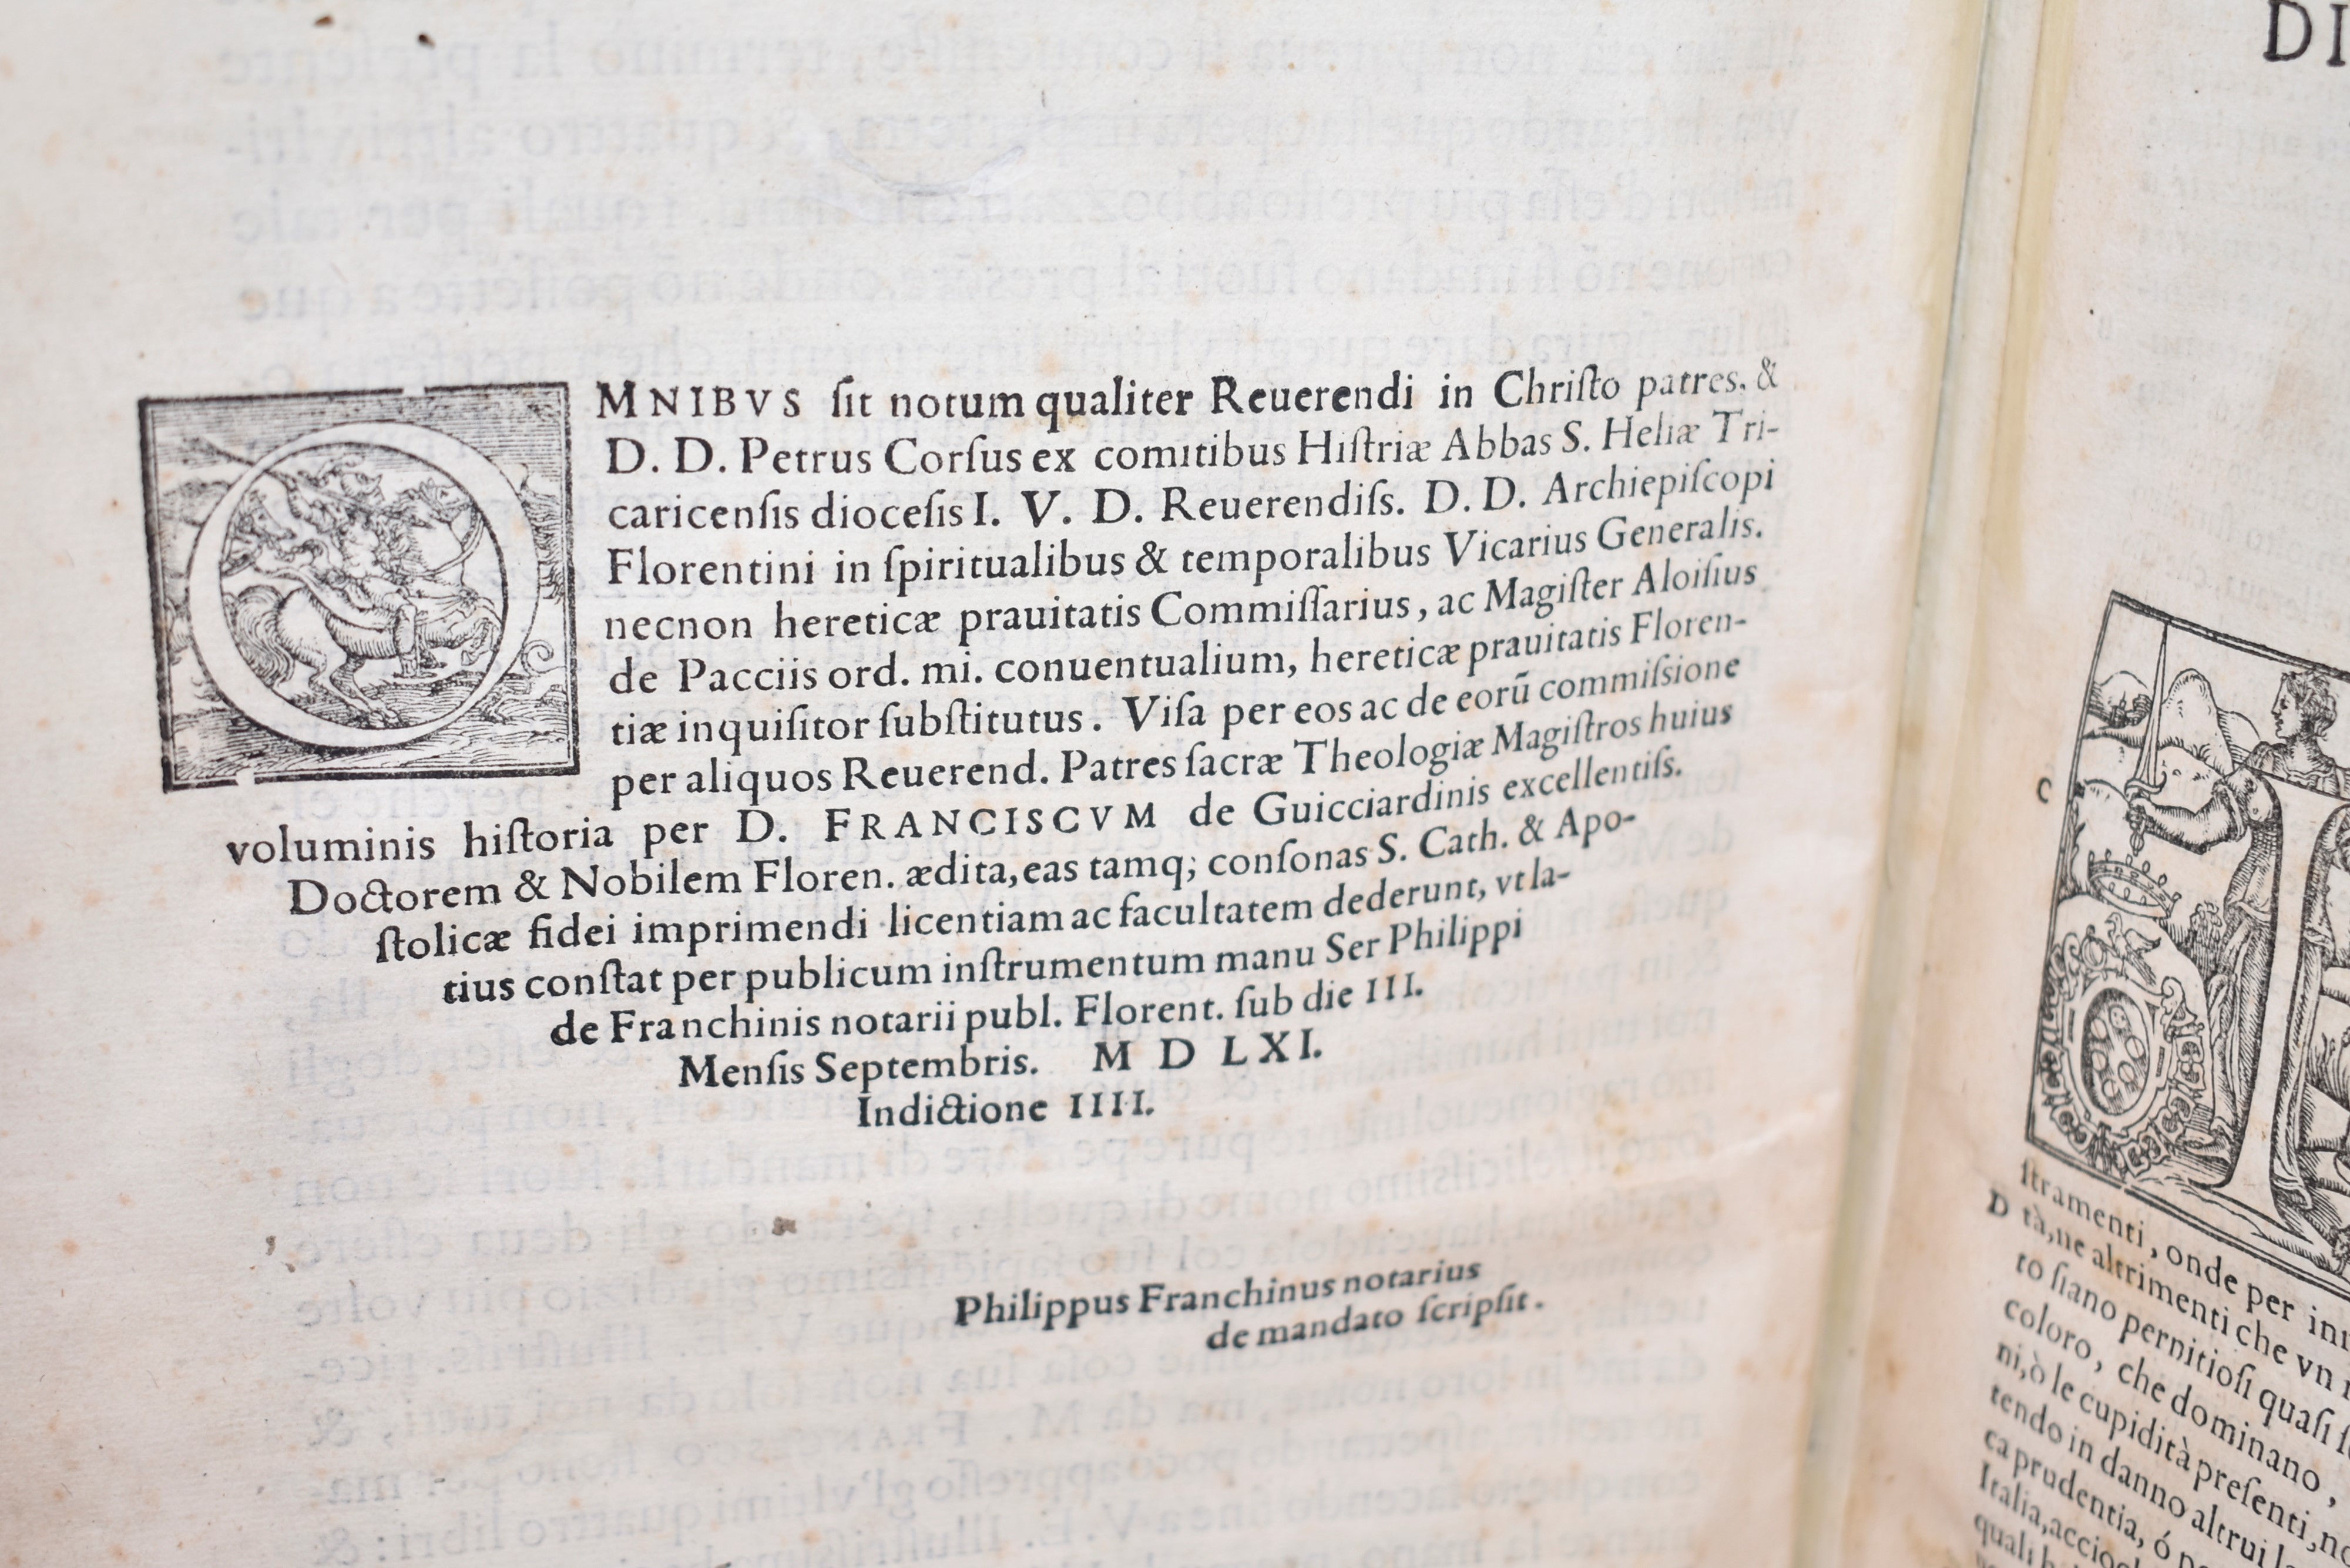 OMNIBVS ſit notum qualiter Reuerendi in Chriſto patres. &
D. D. Petrus Corſus ex comitibus Hiſtriæ Abbas S. Heliæ Tri-
caricenſis dioceſis I. V. D. Reuerendiſs. D. D. Archiepiſcopi
Florentini in ſpiritualibus & temporalibus Vicarius Generalis.
necnon hereticæ prauitatis Commiſſarius, ac Magiſter Aloiſius
de Pacciis ord. mi. conuentualium, hereticæ prauitatis Floren-
tiæ inquiſitor ſubſtitutus. Viſa per eos ac de eorū commiſsione
per aliquos Reuerend. Patres ſacræ Theologiæ Magiſtros huius
voluminis hiſtoria per D. FRANCISCVM de Guicciardinis excellentiſs.
Doctorem & Nobilem Floren. ædita, eas tamq; conſonas S. Cath. & Apo-
ſtolicæ fidei imprimendi licentiam ac facultatem dederunt, vt la-
tius conſtat per publicum inſtrumentum manu Ser Philippi
de Franchinis notarii publ. Florent. ſub die III.
Menſis Septembris. M D LXI.
Indictione IIII.
Philippus Franchinus notarius
de mandato ſcripſit.
DI
C
ſtramenti, onde per
D tà, ne altrimenti che vn
to ſiano pernitioſi quaſi
coloro, che dominano,
ni, ò le cupidità preſenti,
tendo in danno altrui
ca prudentia, ó
Italia,
quali